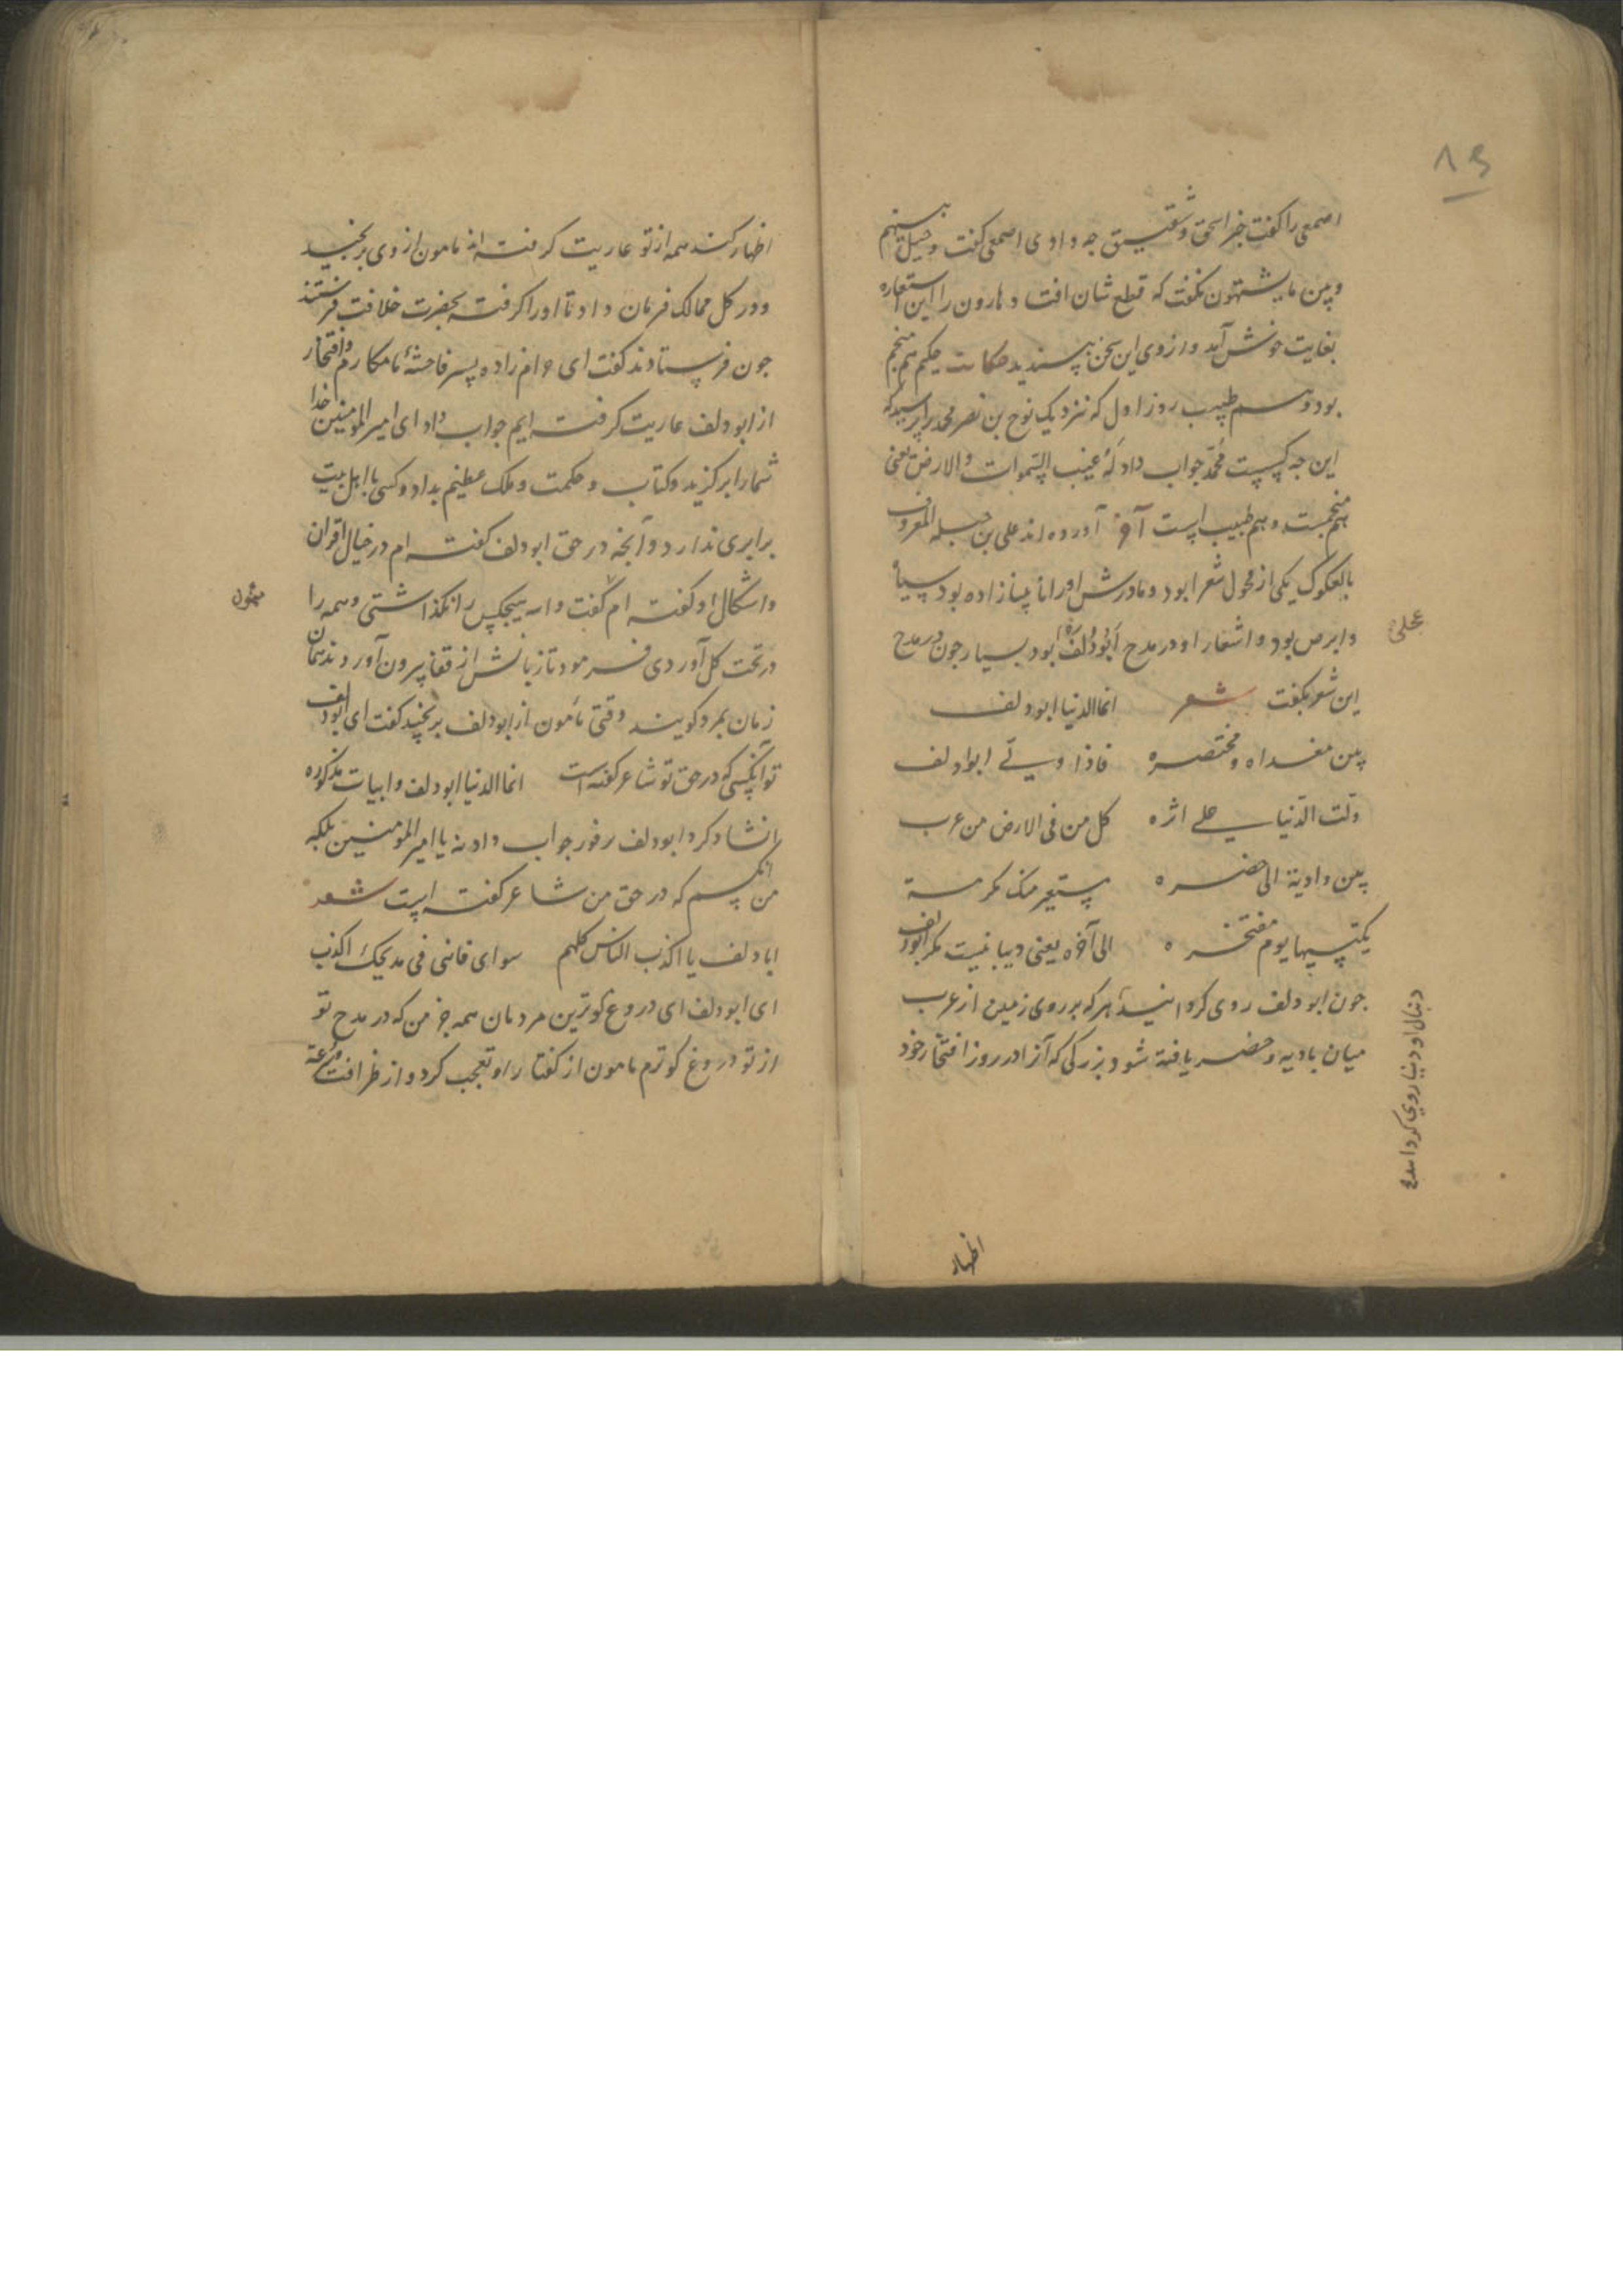 ۸۹
اصمعی را گفت خبر اسحق و شقیق چه دادی اصمعی گفت وحیل بینهم
وبین ما یشتهون نگفت که قطع شان افتد و هارون را این استعاره
بغایت خوش آمد و از وی این سخن بپسندید حکایت حکیم هم منجم
بود و هم طبیب روز اول که نزدیک نوح بن نصر محمد را پرسید که
این چه کسیست محمد جواب داد له غیب السموات والارض یعنی
هم منجمست و هم طبیب است آورده اند علی بن جبله المعروف
بالعکوک یکی از فحول شعرا بود و مادرش او را نابینا زاده بود سیاه
و ابرص بود و اشعار او در مدح ابودلف بود بسیار جون در مدح
عجلی
این شعر بگفت شعر انما الدنیا ابودلف
بین مغداه ومحتضره فاذا ولی ابوادلف
ولت الدنیا علی اثره کل من فی الارض من عرب
بین وادیة الی حضره مستعیر منک مکرمة
یکتسیها یوم مفتخره الی آخره یعنی دنیا نیست مکر ابودلف
جون ابودلف روی کرداند هر که بر روی زمین از عرب
میان بادیه و حضر یافته شود بزرکی که آنرا در روز افتخار خود
دنیا روی کرداند
اظهار
اظهار کند همه از تو عاریت کرفته اند مامون از وی برنجید
و در کل ممالک فرمان داد تا او را کرفته بحضرت خلافت فرستند
جون فرستادند کفت ای حرام زاده پسر فاحشه ما مکارم و افتخار
از ابودلف عاریت کرفته ایم جواب داد ای امیر المومنین خدا
شما را برکزید و کتاب و حکمت و ملک عظیم بداد و کسی با اهل بیت
برابری ندارد و آنچه در حق ابودلف کفته ام در خیال اقران
و اشکال او کفته ام کفت والله هیچکس را نکذاشتی و همه را
در تحت کل آوردی فرمود تا زبانش از قفا بیرون آوردند همان
زمان بمرد کویند وقتی مامون از ابودلف برنجید کفت ای ابودلف
تو آنکسی که در حق تو شاعر کفته است انما الدنیا ابودلف و ابیات مذکوره
انشاد کرد ابودلف بفور جواب داد نه یا امیر المومنین بلکه
من آنکسم که در حق من شاعر کفته است شعر
ابا دلف یا اکذب الناس کلهم سوای فانی فی مدیحک اکذب
ای ابودلف ای دروغ کوترین مردمان همه جز من که در مدح تو
از تو دروغ کوترم مامون از کفتار او تعجب کرد و از ظرافت